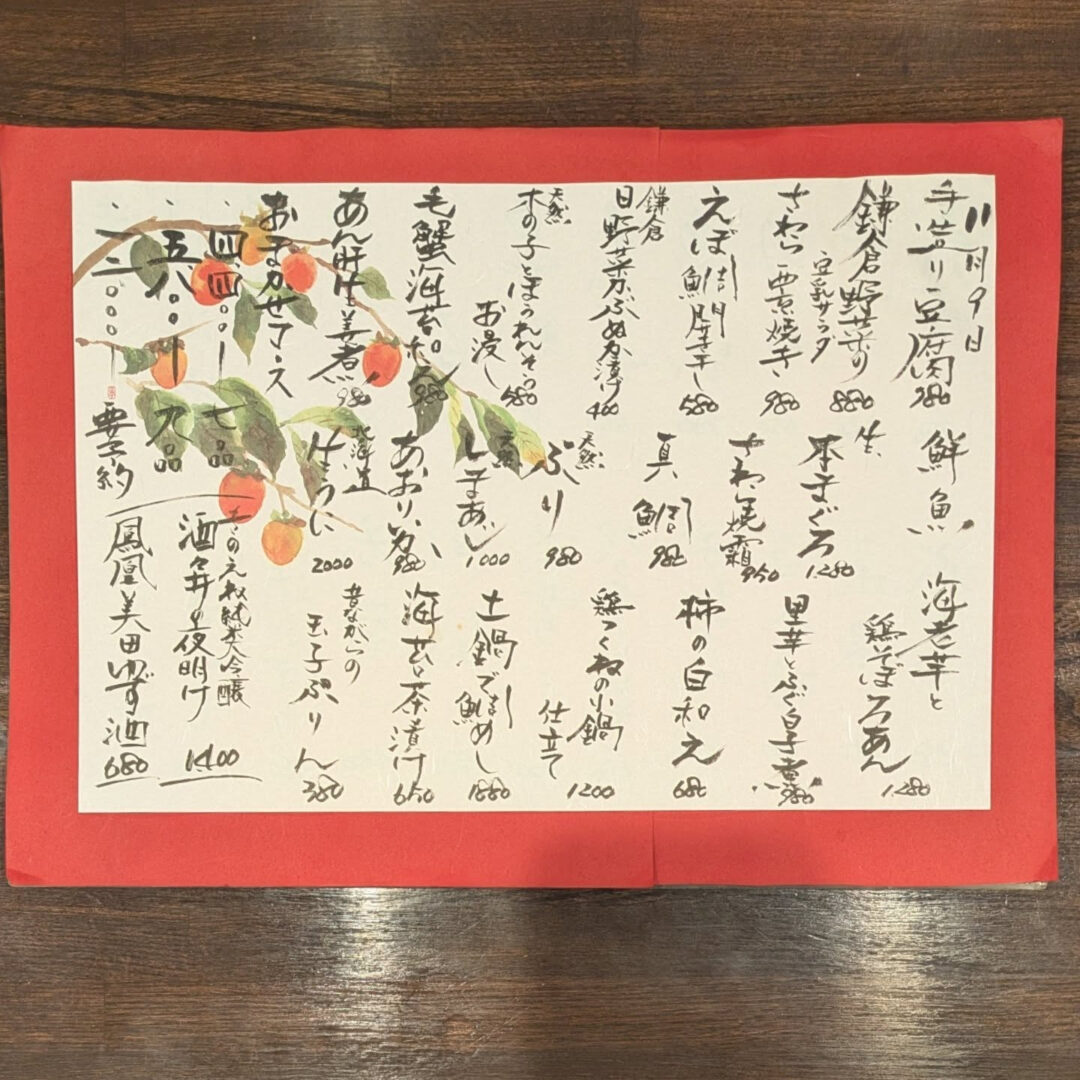 11月9日
手造り豆腐
780
鎌倉野菜の
豆乳サラダ
880
さわら西京焼き
980
えぼ鯛開き干し
580
鎌倉
日野菜かぶぬか漬け
400
天然
木の子とほうれんそう
お浸し
580
毛蟹海苔ポン
980
あん肝生姜煮
980
おまかせコース
四、四〇〇ー 七品
五、八〇〇ー 九品
一二、〇〇〇ー 要予約
鮮魚
生
本まぐろ
1280
さわら焼霜
950
真鯛
980
天然
ぶり
980
天然
しまあじ
1000
あおりいか
980
北海道
生うに
2000
海老芋と
鶏そぼろあん
1280
里芋とふぐ白子煮
980
柿の白和え
680
鶏つくねの小鍋
仕立て
1200
土鍋で鯛めし
1880
海苔茶漬け
650
昔ながらの
玉子ぷりん
380
きのえね純米大吟醸
酒々井の夜明け
1400
鳳凰美田ゆず酒
680